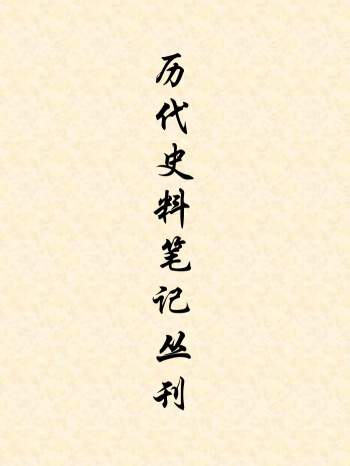 历代史料笔记丛刊